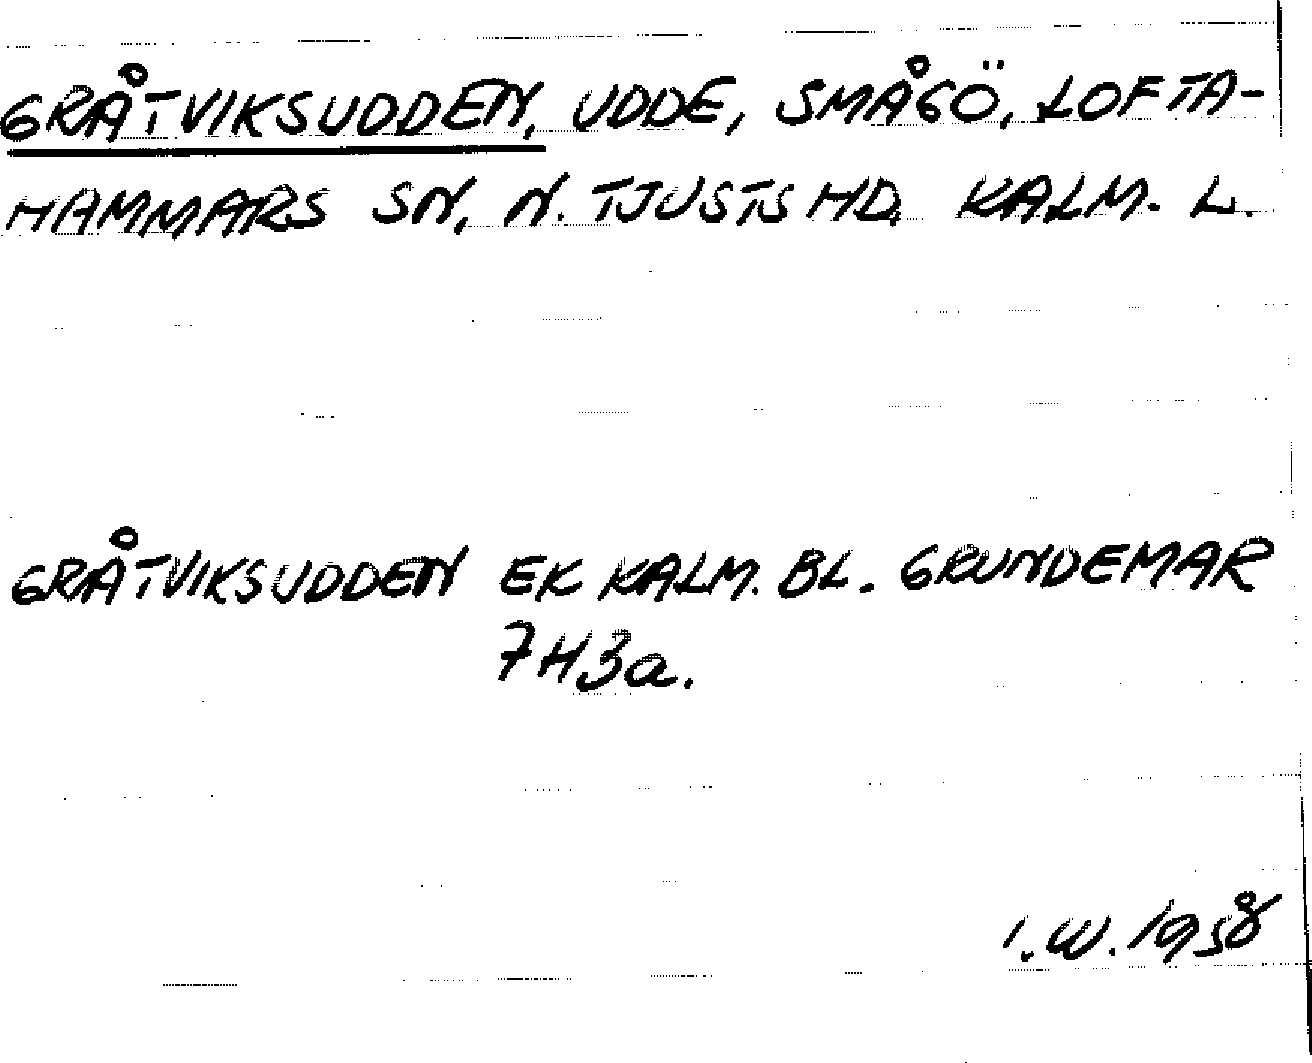 GRÅTVIKSUDDEN, UDDE, SMÅGÖ, LOFTA-
HAMMARS SN, N. TJUSTS HD. KALM. L.
GRÅTVIKSUDDEN EK KALM. BL. GRUNDEMAR
7H3a.
I.W. 1958